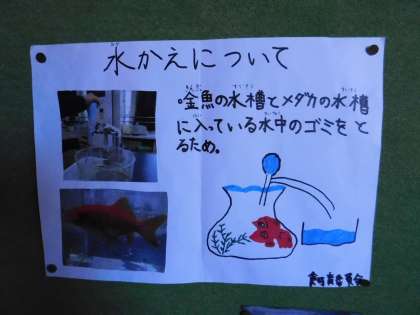 水かえについて
・金魚の水槽とメダカの水槽
に入っている水中のゴミをと
るため。
飼育委員会